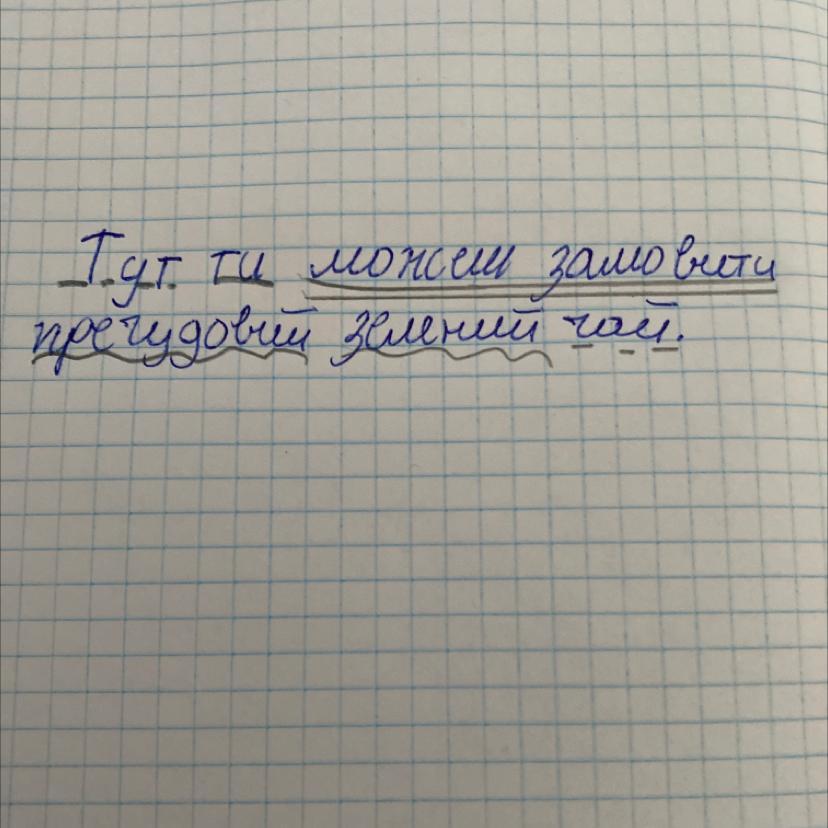 Тут ти можеш замовити
пречудовий зелений чай.